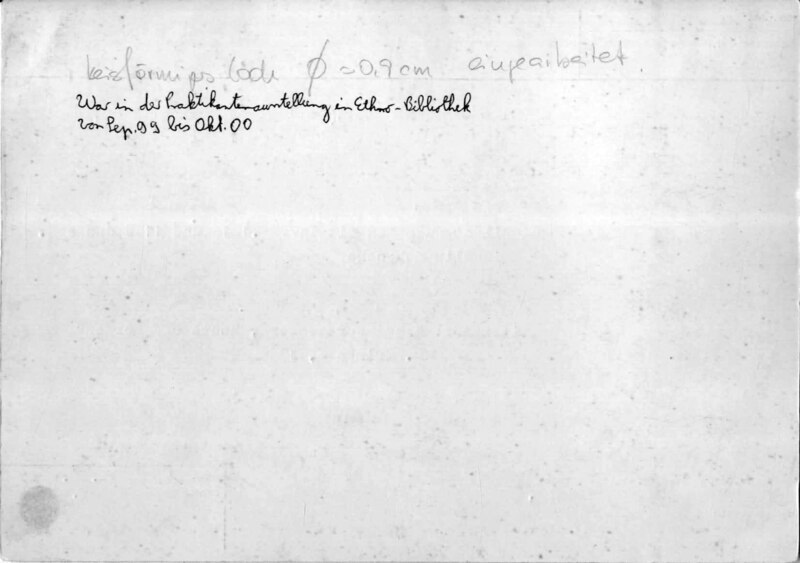 kreisförmiges Loch Ø = 0,9 cm eingearbeitet.
War in der Praktikantenausstellung in Ethno-Bibliothek
von Sep. 99 bis Okt. 00